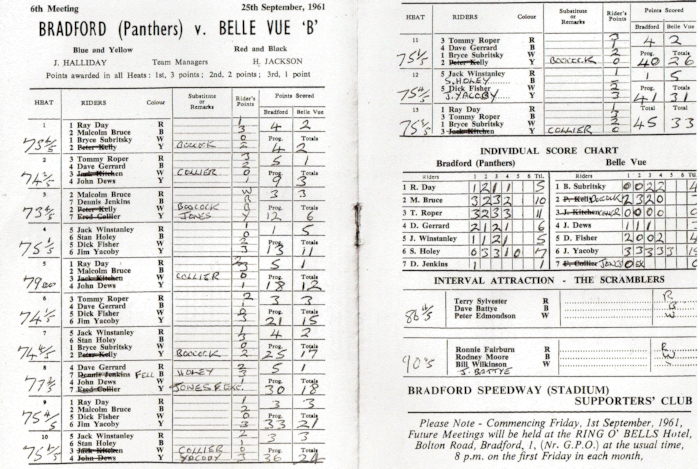 6th Meeting 25th September, 1961
BRADFORD (Panthers) v. BELLE VUE 'B'
Blue and Yellow Red and Black
J. HALLIDAY Team Managers H. JACKSON
Points awarded in all Heats: 1st, 3 points; 2nd, 2 points; 3rd, 1 point
HEAT RIDERS Colour Substitutes or Remarks Rider's Points Points Scored
Bradford Belle Vue
1 1 Ray Day R 1 4 2
2 Malcolm Bruce B 3
1 Bryce Subritsky W 0 Prog. Totals
75 2/5 2 Peter Kelly Y BOCOCK 2 4 2
2 3 Tommy Roper R 3 5 1
4 Dave Gerrard B 2
3 Jack Kitchen W COLLIER 0 Prog. Totals
74 2/5 4 John Dews Y 1 9 3
3 2 Malcolm Bruce R 3 3
7 Dennis Jenkins B
2 Peter Kelly W BOCOCK Prog. Totals
73 4/5 7 Fred Collier Y JONES 12 6
4 5 Jack Winstanley R 1 1 5
6 Stan Holey B 0
5 Dick Fisher W 2 Prog. Totals
75 1/5 6 Jim Yacoby Y 3 13 11
5 1 Ray Day R 2 5 1
2 Malcolm Bruce B 3
3 Jack Kitchen W COLLIER 0 Prog. Totals
4 John Dews Y 1 18 12
6 3 Tommy Roper R 2 3 3
4 Dave Gerrard B 1
5 Dick Fisher W 0 Prog. Totals
6 Jim Yacoby Y 3 21 15
7 5 Jack Winstanley R 4 2
6 Stan Holey B
1 Bryce Subritsky W Prog. Totals
2 Peter Kelly Y BOCOCK 25 17
8 4 Dave Gerrard R HOLEY 5 1
7 Dennis Jenkins FELL B
4 John Dews W Prog. Totals
7 Fred Collier Y JONES F. EXC. 30 18
9 1 Ray Day R 1 3 3
2 Malcolm Bruce B 2
5 Dick Fisher W 0 Prog. Totals
6 Jim Yacoby Y 3 33 21
10 5 Jack Winstanley R 2 3 3
6 Stan Holey B 1
3 Jack Kitchen W COLLIER 0 Prog. Totals
4 John Dews Y YACOBY 3 36 24
HEAT RIDERS Colour Substitutes or Remarks Rider's Points Points Scored
Bradford Belle Vue
11 3 Tommy Roper R 3 4 2
4 Dave Gerrard B 1
1 Bryce Subritsky W 2 Prog. Totals
2 Peter Kelly Y BOCOCK 0 40 26
12 5 Jack Winstanley R 1 1 5
S. HOLEY B
5 Dick Fisher W 2 Prog. Totals
J. YACOBY Y 3 41 31
13 1 Ray Day R 1 Total Total
3 Tommy Roper B 3
1 Bryce Subritsky W 2 45 33
3 Jack Kitchen Y COLLIER 0
INDIVIDUAL SCORE CHART
Bradford (Panthers) Belle Vue
Riders 1 2 3 4 5 6 Ttl. Riders 1 2 3 4 5 6 Ttl.
1 R. Day 1 2 1 1 5 1 B. Subritsky 0 0 2 2
2 M. Bruce 3 2 3 2 10 2 P. Kelly BOCOCK 2 3 2 0
3 T. Roper 3 2 3 3 11 3 J. Kitchen 0 0 0 0
4 D. Gerrard 2 1 2 1 6 4 J. Dews 1 1 1
5 J. Winstanley 1 1 2 1 5 5 D. Fisher 2 0 0 2
6 S. Holey 0 3 3 1 0 7 6 J. Yacoby 3 3 3 3 3
7 D. Jenkins 1 1 7 F. Collier JONES
INTERVAL ATTRACTION - THE SCRAMBLERS
Terry Sylvester R R
Dave Battye B B
86 4/5 Peter Edmondson W W
Ronnie Fairburn R R
Rodney Moore B
Bill Wilkinson W
J. BATTYE
BRADFORD SPEEDWAY (STADIUM)
SUPPORTERS' CLUB
Please Note - Commencing Friday, 1st September, 1961,
Future Meetings will be held at the RING O' BELLS Hotel,
Bolton Road, Bradford, 1, (Nr. G.P.O.) at the usual time,
8 p.m. on the first Friday in each month,